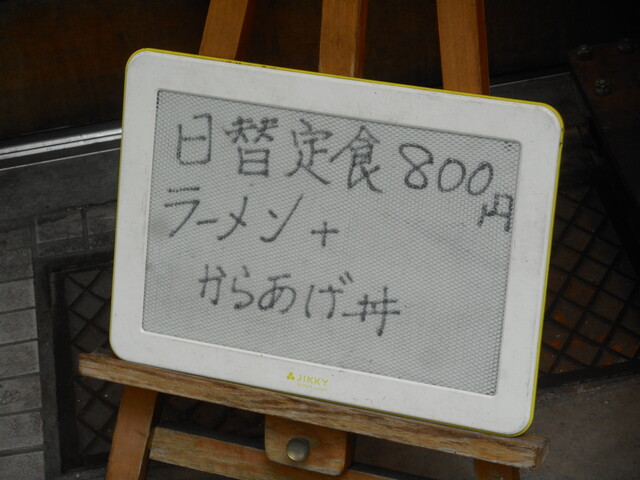 日替定食800円
ラーメン+
からあげ丼
JIKKY